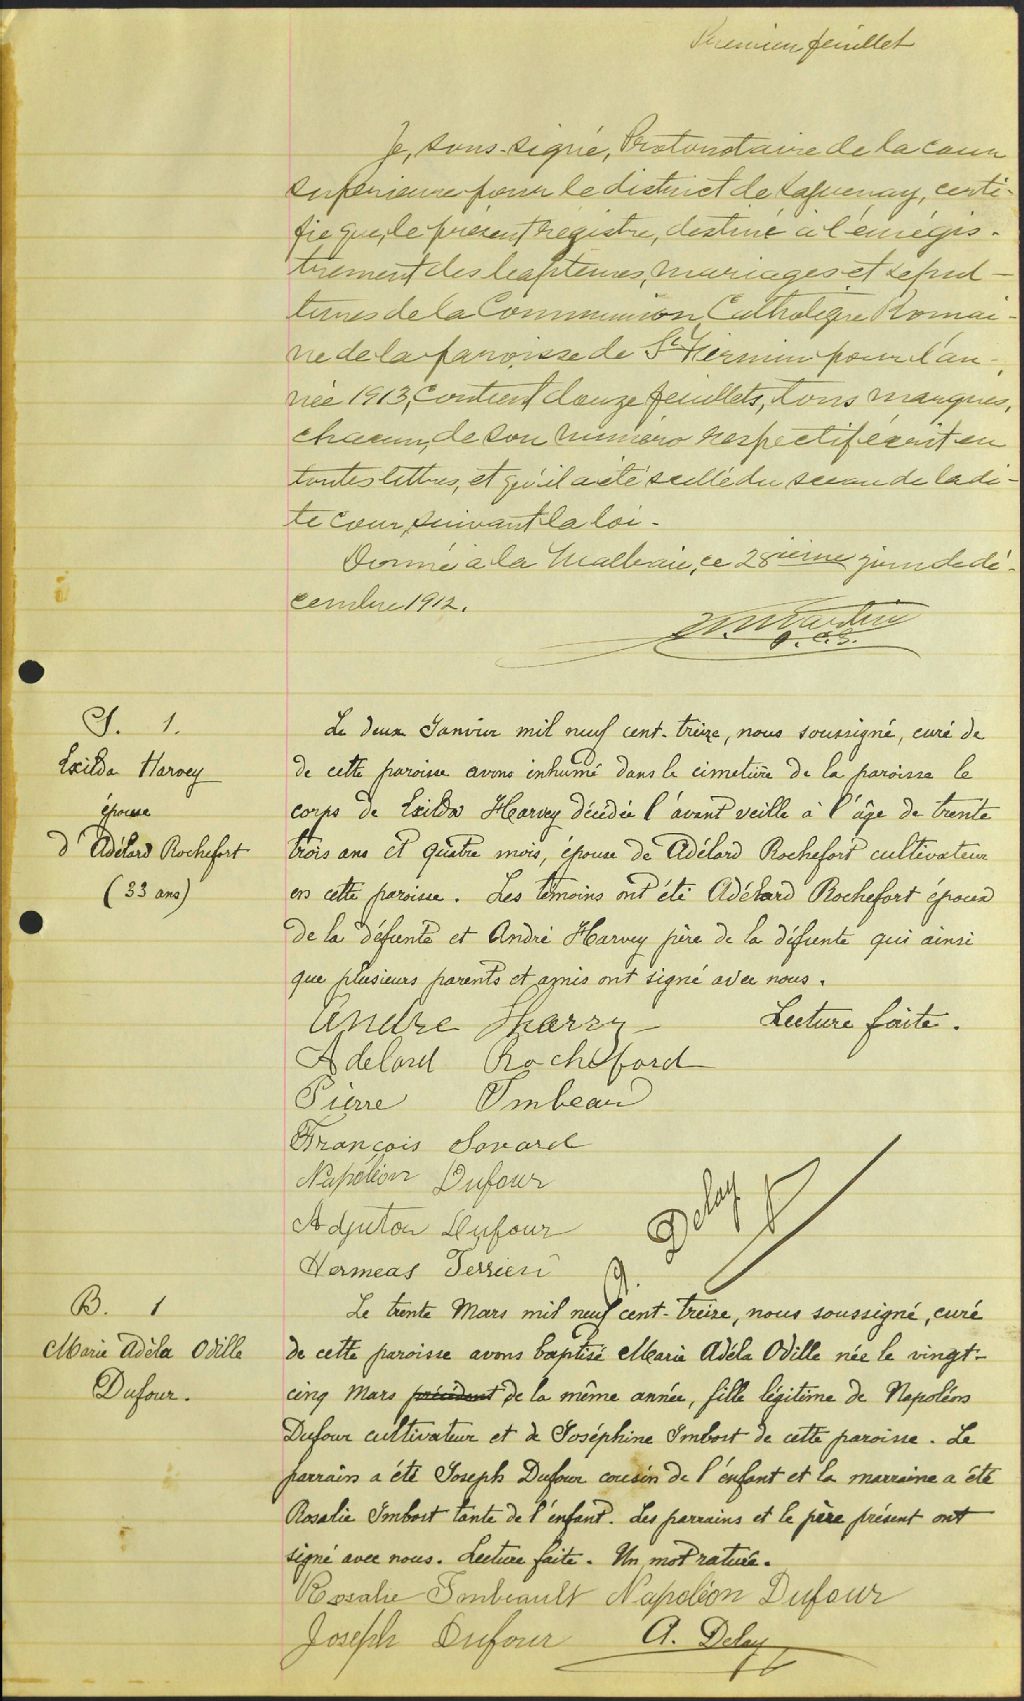 Premier feuillet
Je, sous-signé, Protonotaire de la cour
supérieure pour le district de Saguenay, certi-
fie que, le présent régistre, destiné à l'énrégis-
trement des baptêmes, mariages et sépul-
tures de la Communion Catholique Romai-
ne de la paroisse de St Firmin pour l'an-
née 1913, contient douze feuillets, tous marqués,
chacun, de son numéro respectif écrit en
toutes lettres, et qu'il a été scellé du sceau de ladi-
te cour, suivant la loi.
Donné à la Malbaie, ce 28ième jour de dé-
cembre 1912.
P. C. S.
S. 1.
Exilda Harvey
épouse
d'Adélard Rochefort
(33 ans)
Le deux Janvier mil neuf cent-treize, nous soussigné, curé de
de cette paroisse avons inhumé dans le cimetière de la paroisse le
corps de Exilda Harvey décédée l'avant veille à l'âge de trente
trois ans et quatre mois, épouse de Adélard Rochefort cultivateur
en cette paroisse. Les témoins ont été Adélard Rochefort époux
de la défunte et André Harvey père de la défunte qui ainsi
que plusieurs parents et amis ont signé avec nous.
Lecture faite.
André Harvey
Adelard Rocheford
Pierre Imbeau
François Savard
Napoléon Dufour
Adjutor Dufour
Hermeas Terrien
A. Delay
B. 1
Marie Adèla Odille
Dufour.
Le trente Mars mil neuf cent-treize, nous soussigné, curé
de cette paroisse avons baptisé Marie Adéla Odille née le vingt-
cinq Mars précédent de la même année, fille légitime de Napoléon
Dufour cultivateur et de Joséphine Imbost de cette paroisse. Le
parrain a été Joseph Dufour cousin de l'enfant et la marraine a été
Rosalie Imbost tante de l'enfant. Les parrains et le père présent ont
signé avec nous. Lecture faite. Un mot raturé.
Rosalie Imbeault Napoléon Dufour
Joseph Dufour A. Delay